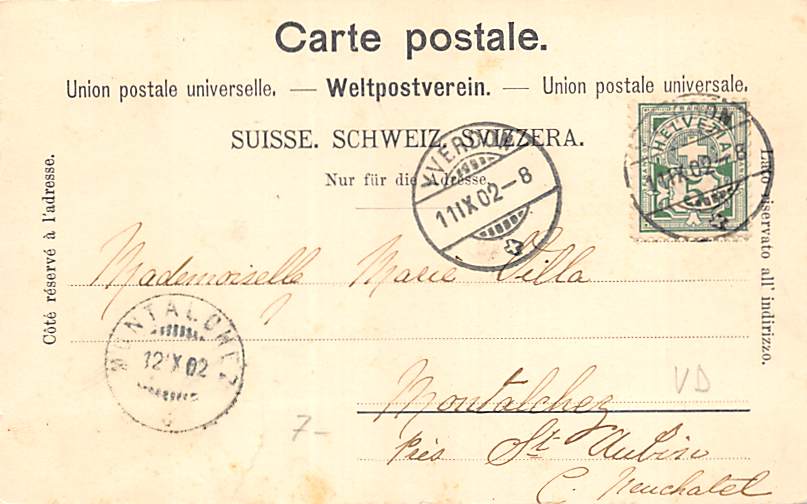 Carte postale.
Union postale universelle. — Weltpostverein. — Union postale universale.
SUISSE. SCHWEIZ. SVIZZERA.
Nur für die Adresse.
Côté réservé à l'adresse.
Lato riservato all' indirizzo.
HELVETIA
YVERDON
11 IX 02-8
11 IX 02-8
Mademoiselle Marie Villa
MONTALCHEZ
12 X 02
Montalchez
VD
7-
Près St. Aubin
C. Neuchatel